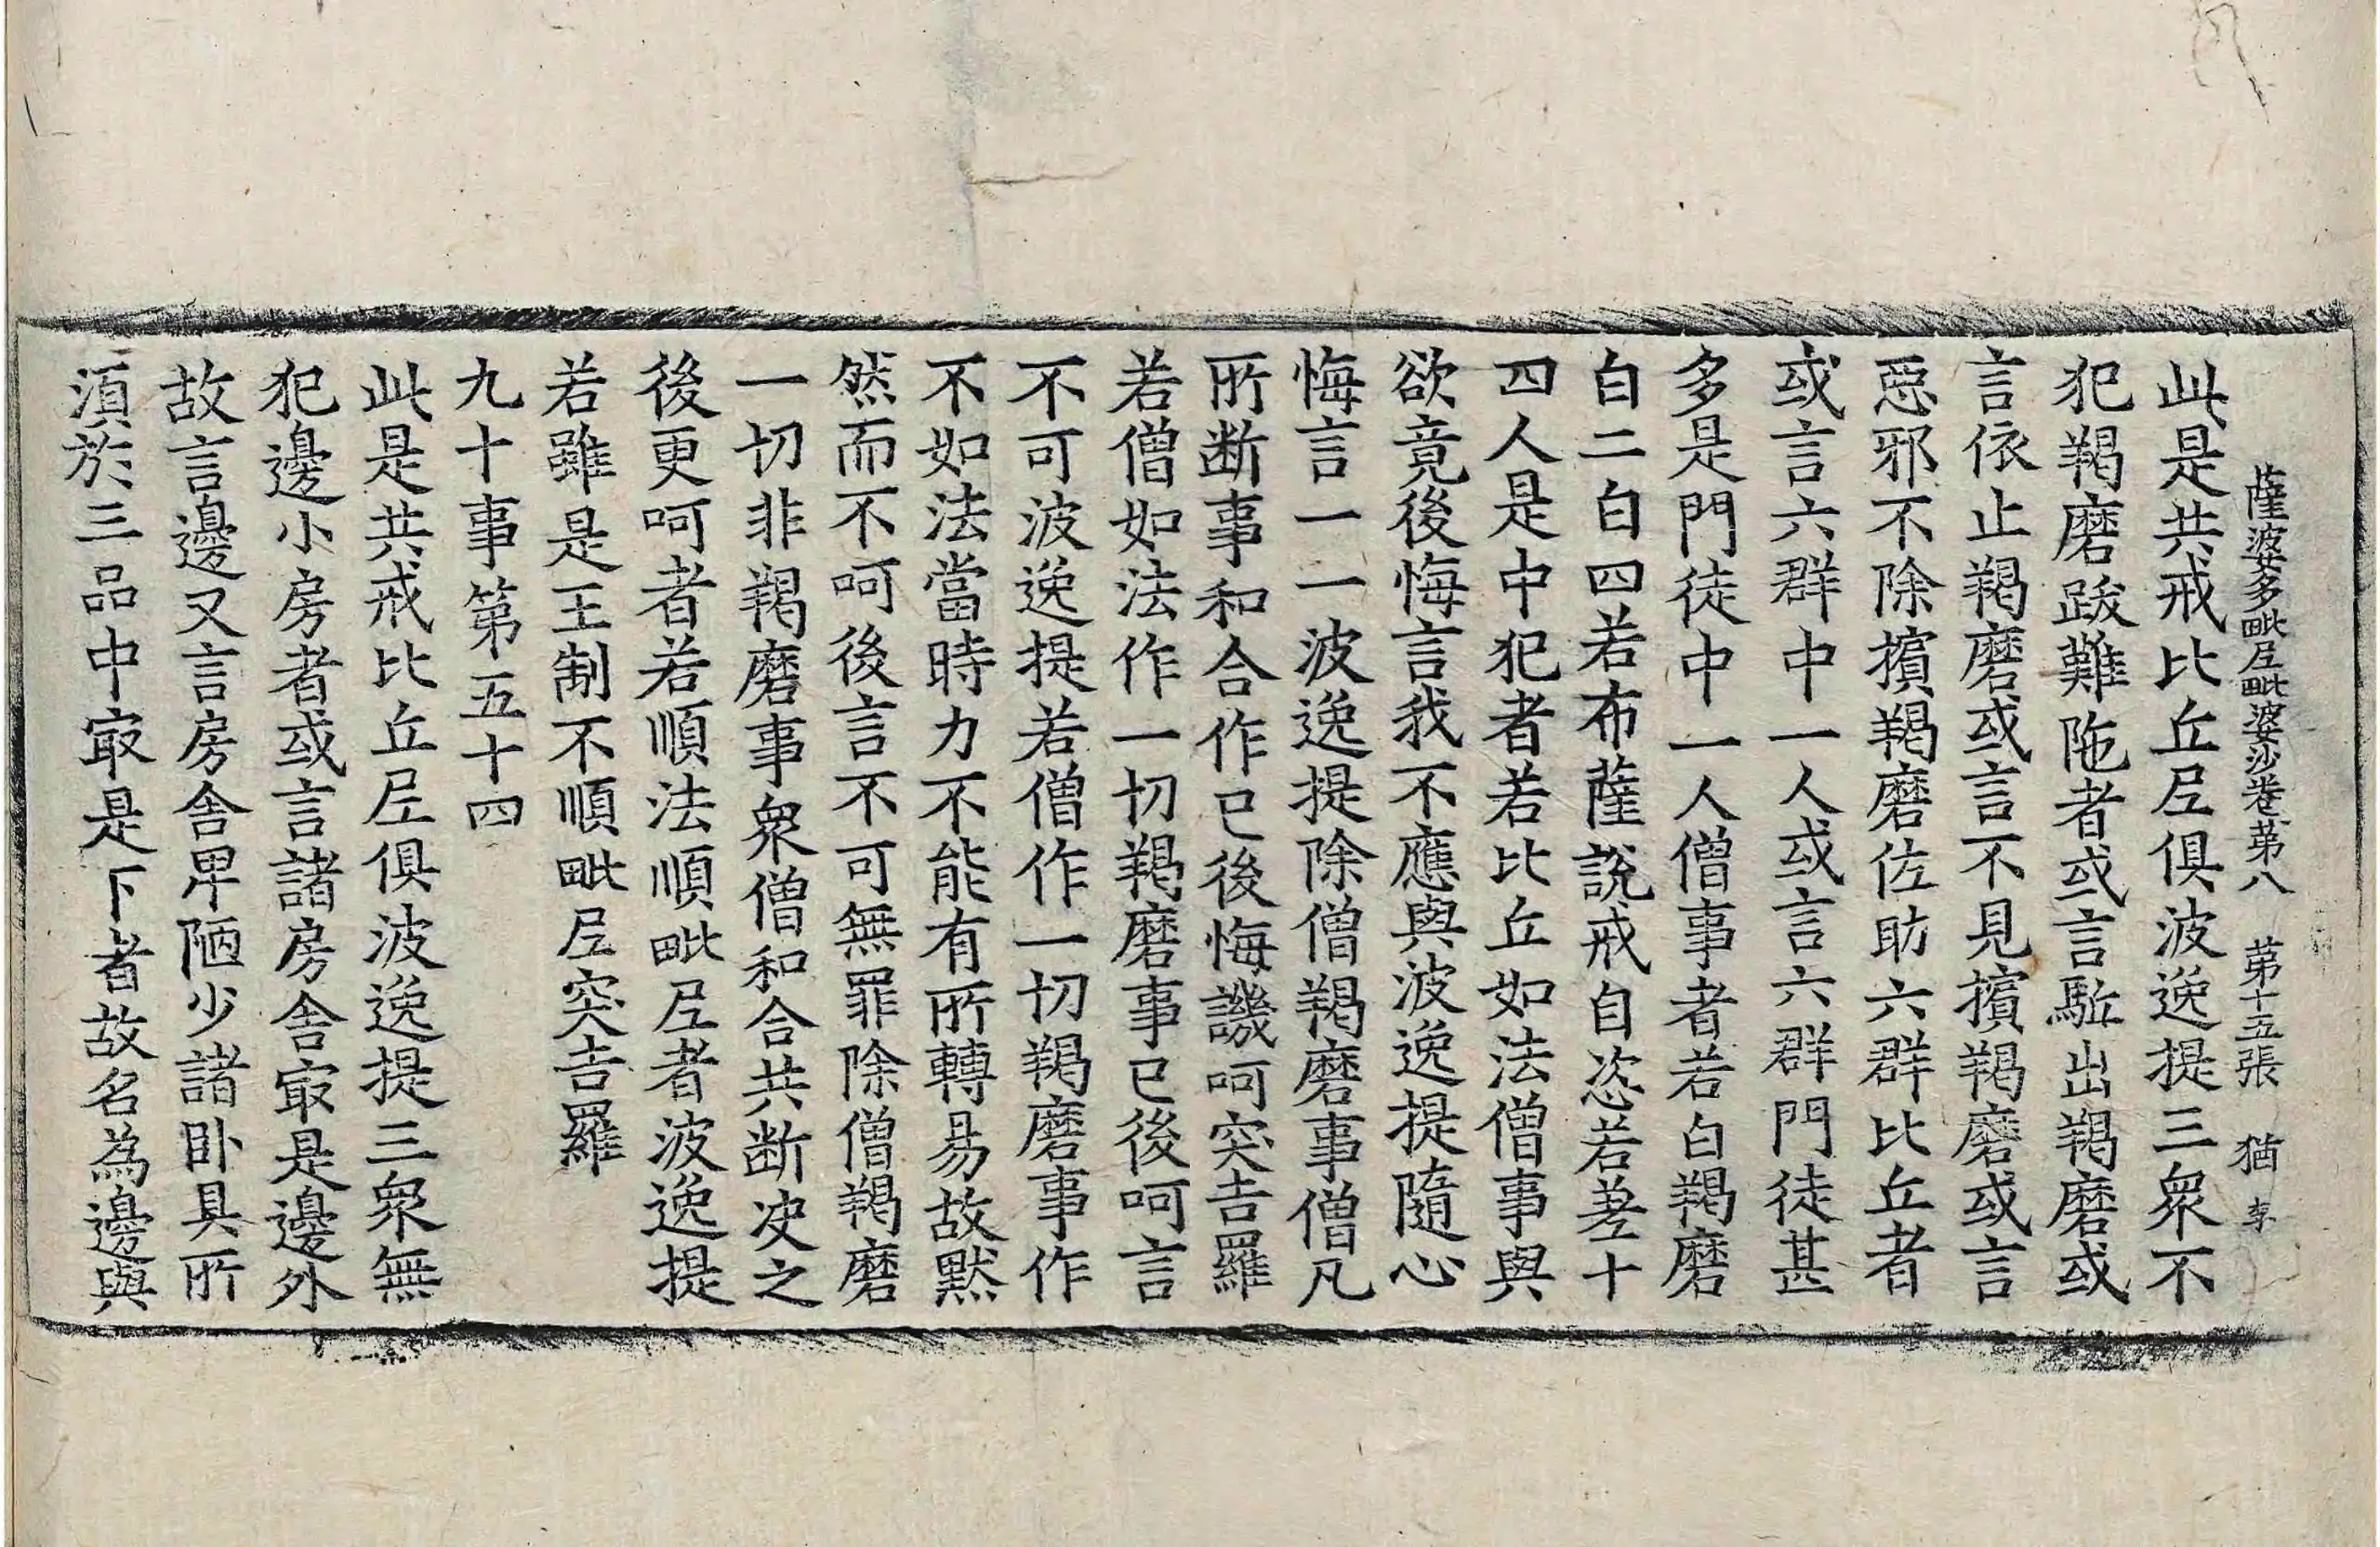 薩婆多毗尼毗婆沙卷第八　第十五張　猶　李
此是共戒比丘尼俱波逸提三衆不
犯羯磨跋難陁者或言駈出羯磨或
言依止羯磨或言不見擯羯磨或言
惡邪不除擯羯磨佐助六群比丘者
或言六群中一人或言六群門徒甚
多是門徒中一人僧事者若白羯磨
白二白四若布薩說戒自恣若差十
四人是中犯者若比丘如法僧事與
欲竟後悔言我不應與波逸提隨心
悔言一一波逸提除僧羯磨事僧凡
所断事和合作已後悔譏呵突吉羅
若僧如法作一切羯磨事已後呵言
不可波逸提若僧作一切羯磨事作
不如法當時力不能有所轉易故默
然而不呵後言不可無罪除僧羯磨
一切非羯磨事衆僧和合共断决之
後更呵者若順法順毗尼者波逸提
若雖是王制不順毗尼突吉羅
九十事第五十四
此是共戒比丘尼俱波逸提三衆無
犯邊小房者或言諸房舍㝡是邊外
故言邊又言房舍卑陋少諸卧具所
湏於三品中㝡是下者故名為邊與